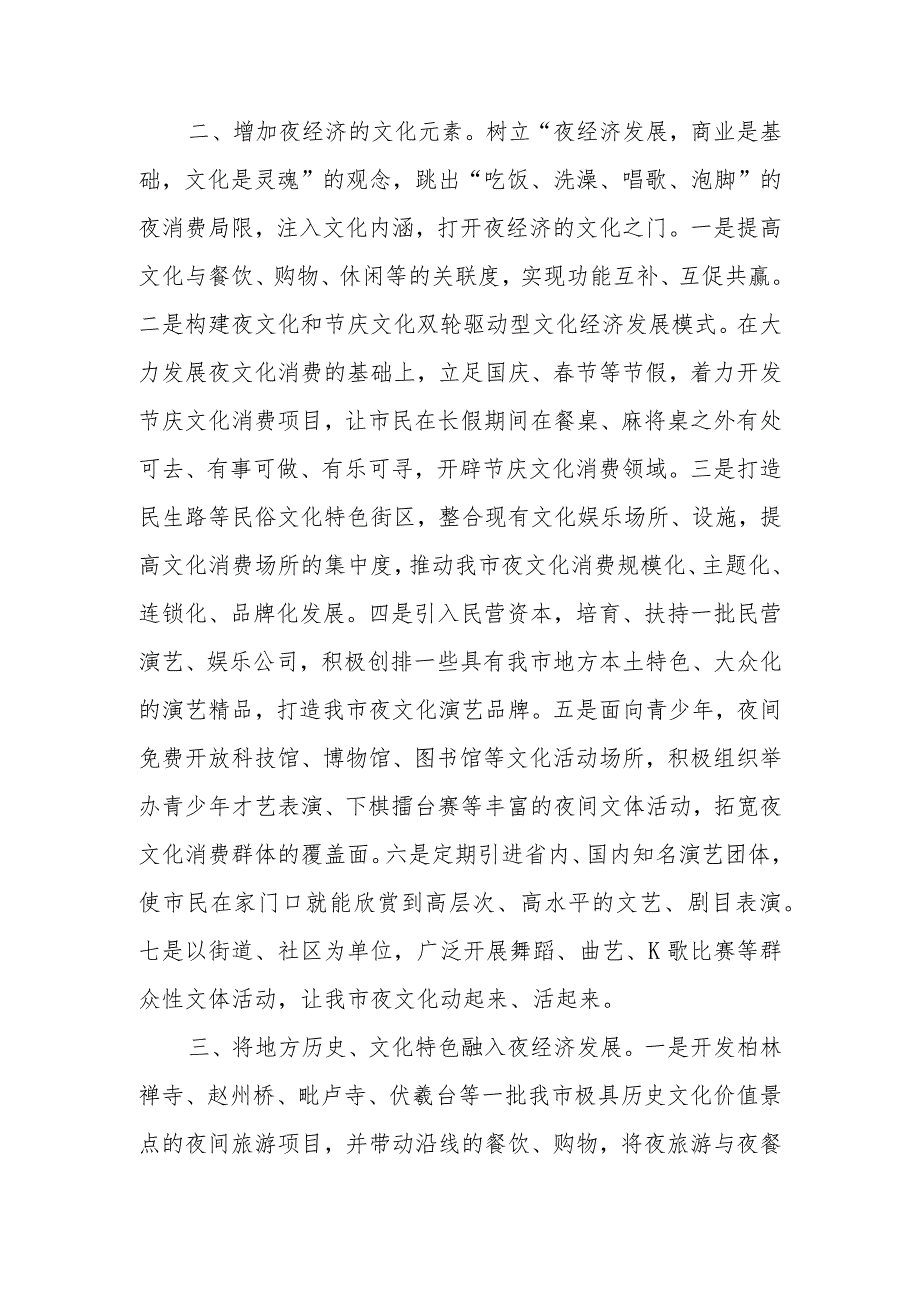 二、增加夜经济的文化元素。树立“夜经济发展，商业是基
础，文化是灵魂”的观念，跳出“吃饭、洗澡、唱歌、泡脚”的
夜消费局限，注入文化内涵，打开夜经济的文化之门。一是提高
文化与餐饮、购物、休闲等的关联度，实现功能互补、互促共赢。
二是构建夜文化和节庆文化双轮驱动型文化经济发展模式。在大
力发展夜文化消费的基础上，立足国庆、春节等节假，着力开发
节庆文化消费项目，让市民在长假期间在餐桌、麻将桌之外有处
可去、有事可做、有乐可寻，开辟节庆文化消费领域。三是打造
民生路等民俗文化特色街区，整合现有文化娱乐场所、设施，提
高文化消费场所的集中度，推动我市夜文化消费规模化、主题化、
连锁化、品牌化发展。四是引入民营资本，培育、扶持一批民营
演艺、娱乐公司，积极创排一些具有我市地方本土特色、大众化
的演艺精品，打造我市夜文化演艺品牌。五是面向青少年，夜间
免费开放科技馆、博物馆、图书馆等文化活动场所，积极组织举
办青少年才艺表演、下棋擂台赛等丰富的夜间文体活动，拓宽夜
文化消费群体的覆盖面。六是定期引进省内、国内知名演艺团体，
使市民在家门口就能欣赏到高层次、高水平的文艺、剧目表演。
七是以街道、社区为单位，广泛开展舞蹈、曲艺、K歌比赛等群
众性文体活动，让我市夜文化动起来、活起来。
三、将地方历史、文化特色融入夜经济发展。一是开发柏林
禅寺、赵州桥、毗卢寺、伏羲台等一批我市极具历史文化价值景
点的夜间旅游项目，并带动沿线的餐饮、购物，将夜旅游与夜餐